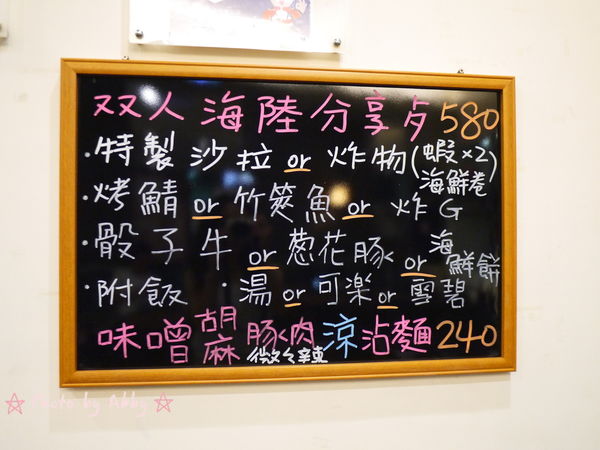 双人海陸分享歺580
·特製沙拉or炸物(蝦×2 海鮮卷)
·烤鯖or竹筴魚or炸G
·骰子牛or蔥花豚or海鮮餅
·附飯 ·湯or可樂or雪碧
味噌胡麻豚肉涼沾麵240
微々辣
☆Photo by Abby☆